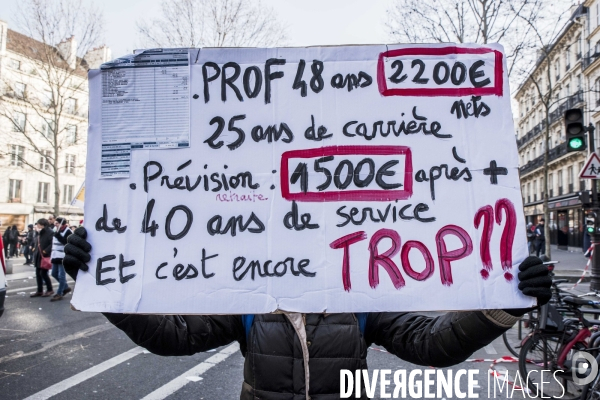 . PROF 48 ans 2200€
nets
25 ans de carrière
. Prévision : 1500€ après +
retraite
de 40 ans de service
Et c'est encore TROP??
DIVERGENCE IMAGES